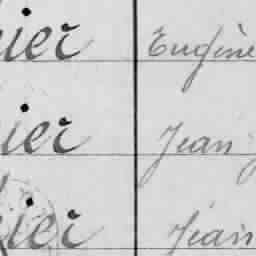 ier Eugène
ier Jean
ier Jean